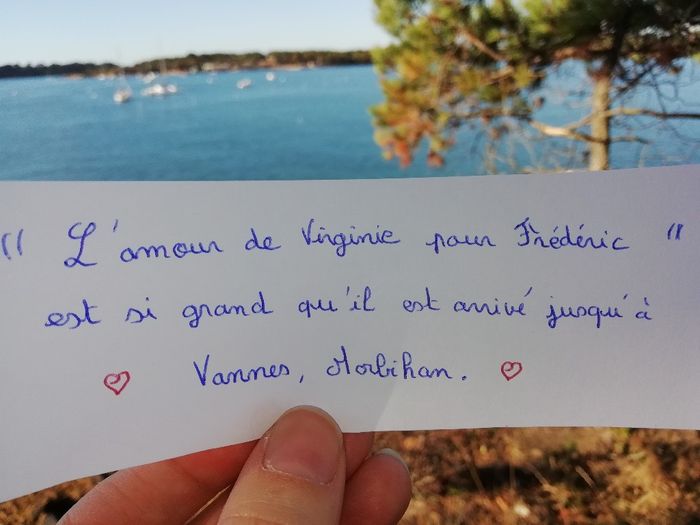 " L'amour de Virginie pour Frédéric "
est si grand qu'il est arrivé jusqu'à
Vannes, Morbihan.